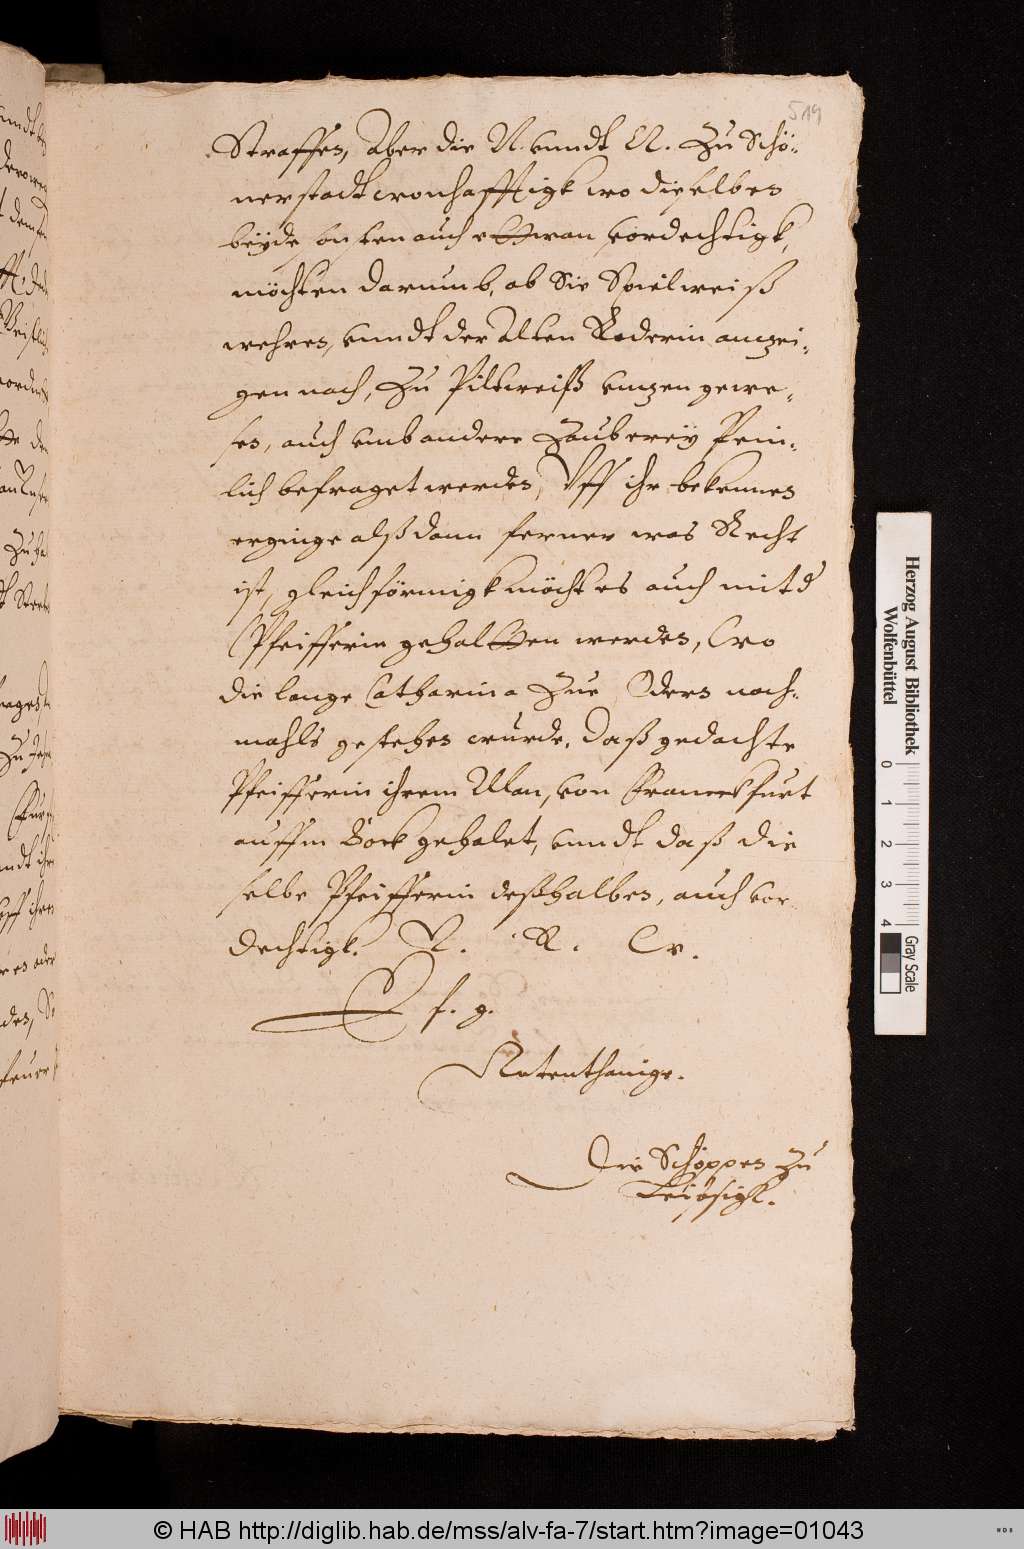 519
Straffen, Aber die N. vnndt N. Zu Schö-
nerstadt wonhafftigk wo dieselben
beyde sonsten auch ettwan vordechtigk,
möchten darumb, ob Sie weiß
wehren, vnndt der Alten Roderin anzei-
gen nach, Zu Pilweiß gewe-
sen, auch vmb andere Zauberey Pein-
lich befraget werden, Vff ihr bekennen
erginge alß dann ferner was Recht
ist, gleichförmigk möcht es auch mit d
Pfeifferin gehaltten werden, Wo
die lange Catharina Zue Odern noch-
mahls gestehen würde, daß gedachte
Pfeifferin ihrem Man, von Franckfurt
auffm Bock geholet, vnndt daß die
selbe Pfeifferin deßhalben, auch vor-
dechtigk. V. R. W.
E f. g.
Untenthanige.
Die Schöppen Zu
Leipsigk.
Herzog August Bibliothek
Wolfenbüttel
0 1 2 3 4
Gray Scale
© HAB http://diglib.hab.de/mss/alv-fa-7/start.htm?image=01043